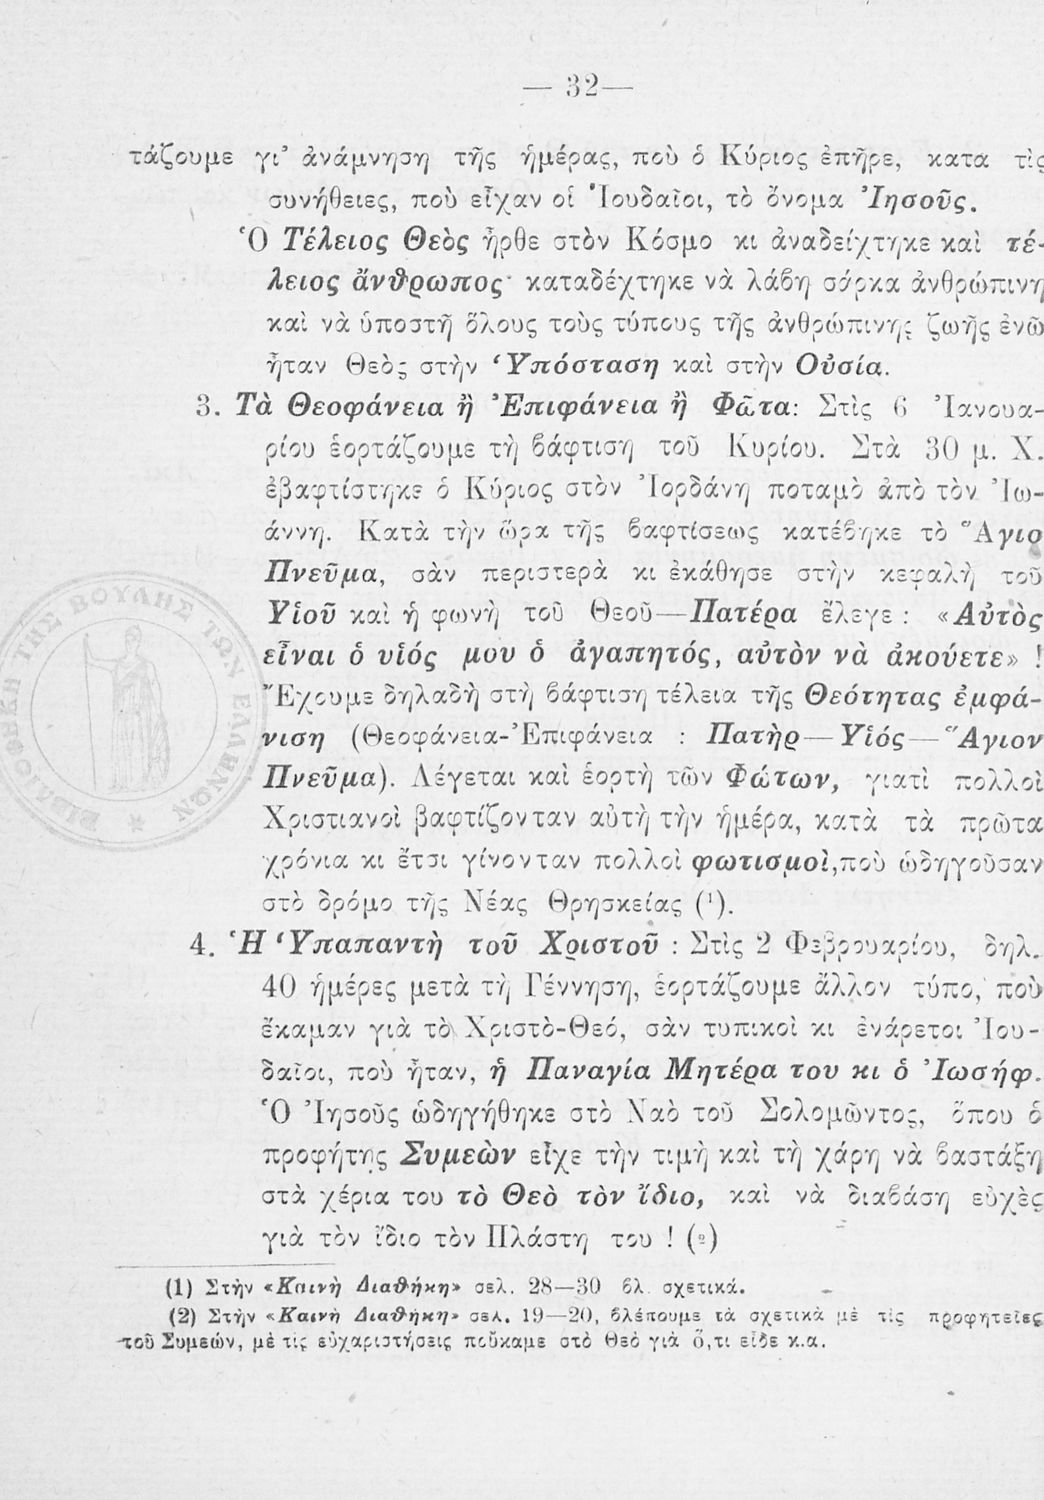 — 32 —
τάζουμε γι' ἀνάμνηση τῆς ἡμέρας, ποὺ ὁ Κύριος ἐπῆρε, κατα τὶς
συνήθειες, ποὺ εἶχαν οἱ Ἰουδαῖοι, τὸ ὄνομα Ἰησοῦς.
Ὁ Τέλειος Θεὸς ἦρθε στὸν Κόσμο κι ἀναδείχτηκε καὶ τέ-
λειος ἄνθρωπος· καταδέχτηκε νὰ λάβη σάρκα ἀνθρώπινη
καὶ νὰ ὑποστῆ ὅλους τοὺς τύπους τῆς ἀνθρώπινης ζωῆς ἐνῶ
ἦταν Θεὸς στὴν Ὑπόσταση καὶ στὴν Οὐσία.
3. Τὰ Θεοφάνεια ἢ Ἐπιφάνεια ἢ Φῶτα: Στὶς 6 Ἰανουα-
ρίου ἑορτάζουμε τὴ βάφτιση τοῦ Κυρίου. Στὰ 30 μ. Χ.
ἐβαφτίστηκε ὁ Κύριος στὸν Ἰορδάνη ποταμὸ ἀπὸ τὸν Ἰω-
άννη. Κατὰ τὴν ὥρα τῆς βαφτίσεως κατέβηκε τὸ Ἅγιο
Πνεῦμα, σὰν περιστερὰ κι ἐκάθησε στὴν κεφαλὴ τοῦ
Υἱοῦ καὶ ἡ φωνὴ τοῦ Θεοῦ—Πατέρα ἔλεγε : «Αὐτὸς
εἶναι ὁ υἱός μου ὁ ἀγαπητός, αὐτὸν νὰ ἀκούετε» !
Ἔχουμε δηλαδὴ στὴ βάφτιση τέλεια τῆς Θεότητας ἐμφά-
νιση (Θεοφάνεια-Ἐπιφάνεια : Πατὴρ—Υἱός—Ἅγιον
Πνεῦμα). Λέγεται καὶ ἑορτὴ τῶν Φώτων, γιατὶ πολλοὶ
Χριστιανοὶ βαφτίζονταν αὐτὴ τὴν ἡμέρα, κατὰ τὰ πρῶτα
χρόνια κι ἔτσι γίνονταν πολλοὶ φωτισμοὶ, ποὺ ὡδηγοῦσαν
στὸ δρόμο τῆς Νέας Θρησκείας (¹).
4. Ἡ Ὑπαπαντὴ τοῦ Χριστοῦ : Στὶς 2 Φεβρουαρίου, δηλ.
40 ἡμέρες μετὰ τὴ Γέννηση, ἑορτάζουμε ἄλλον τύπο, ποὺ
ἔκαμαν γιὰ τὸ Χριστὸ-Θεό, σὰν τυπικοὶ κι ἐνάρετοι Ἰου-
δαῖοι, ποὺ ἦταν, ἡ Παναγία Μητέρα του κι ὁ Ἰωσήφ.
Ὁ Ἰησοῦς ὡδηγήθηκε στὸ Ναὸ τοῦ Σολομῶντος, ὅπου ὁ
προφήτης Συμεὼν εἶχε τὴν τιμὴ καὶ τὴ χάρη νὰ βαστάξη
στὰ χέρια του τὸ Θεὸ τὸν ἴδιο, καὶ νὰ διαβάση εὐχὲς
γιὰ τὸν ἴδιο τὸν Πλάστη του ! (²)
(1) Στὴν «Καινὴ Διαθήκη» σελ. 28—30 βλ. σχετικά.
(2) Στὴν «Καινὴ Διαθήκη» σελ. 19—20, βλέπουμε τὰ σχετικὰ μὲ τὶς προφητεῖες
τοῦ Συμεών, μὲ τὶς εὐχαριστήσεις ποὔκαμε στὸ Θεὸ γιὰ ὅ,τι εἶδε κ.α.
ΒΙΒΛΙΟΘΗΚΗ ΤΗΣ ΒΟΥΛΗΣ ΤΩΝ ΕΛΛΗΝΩΝ